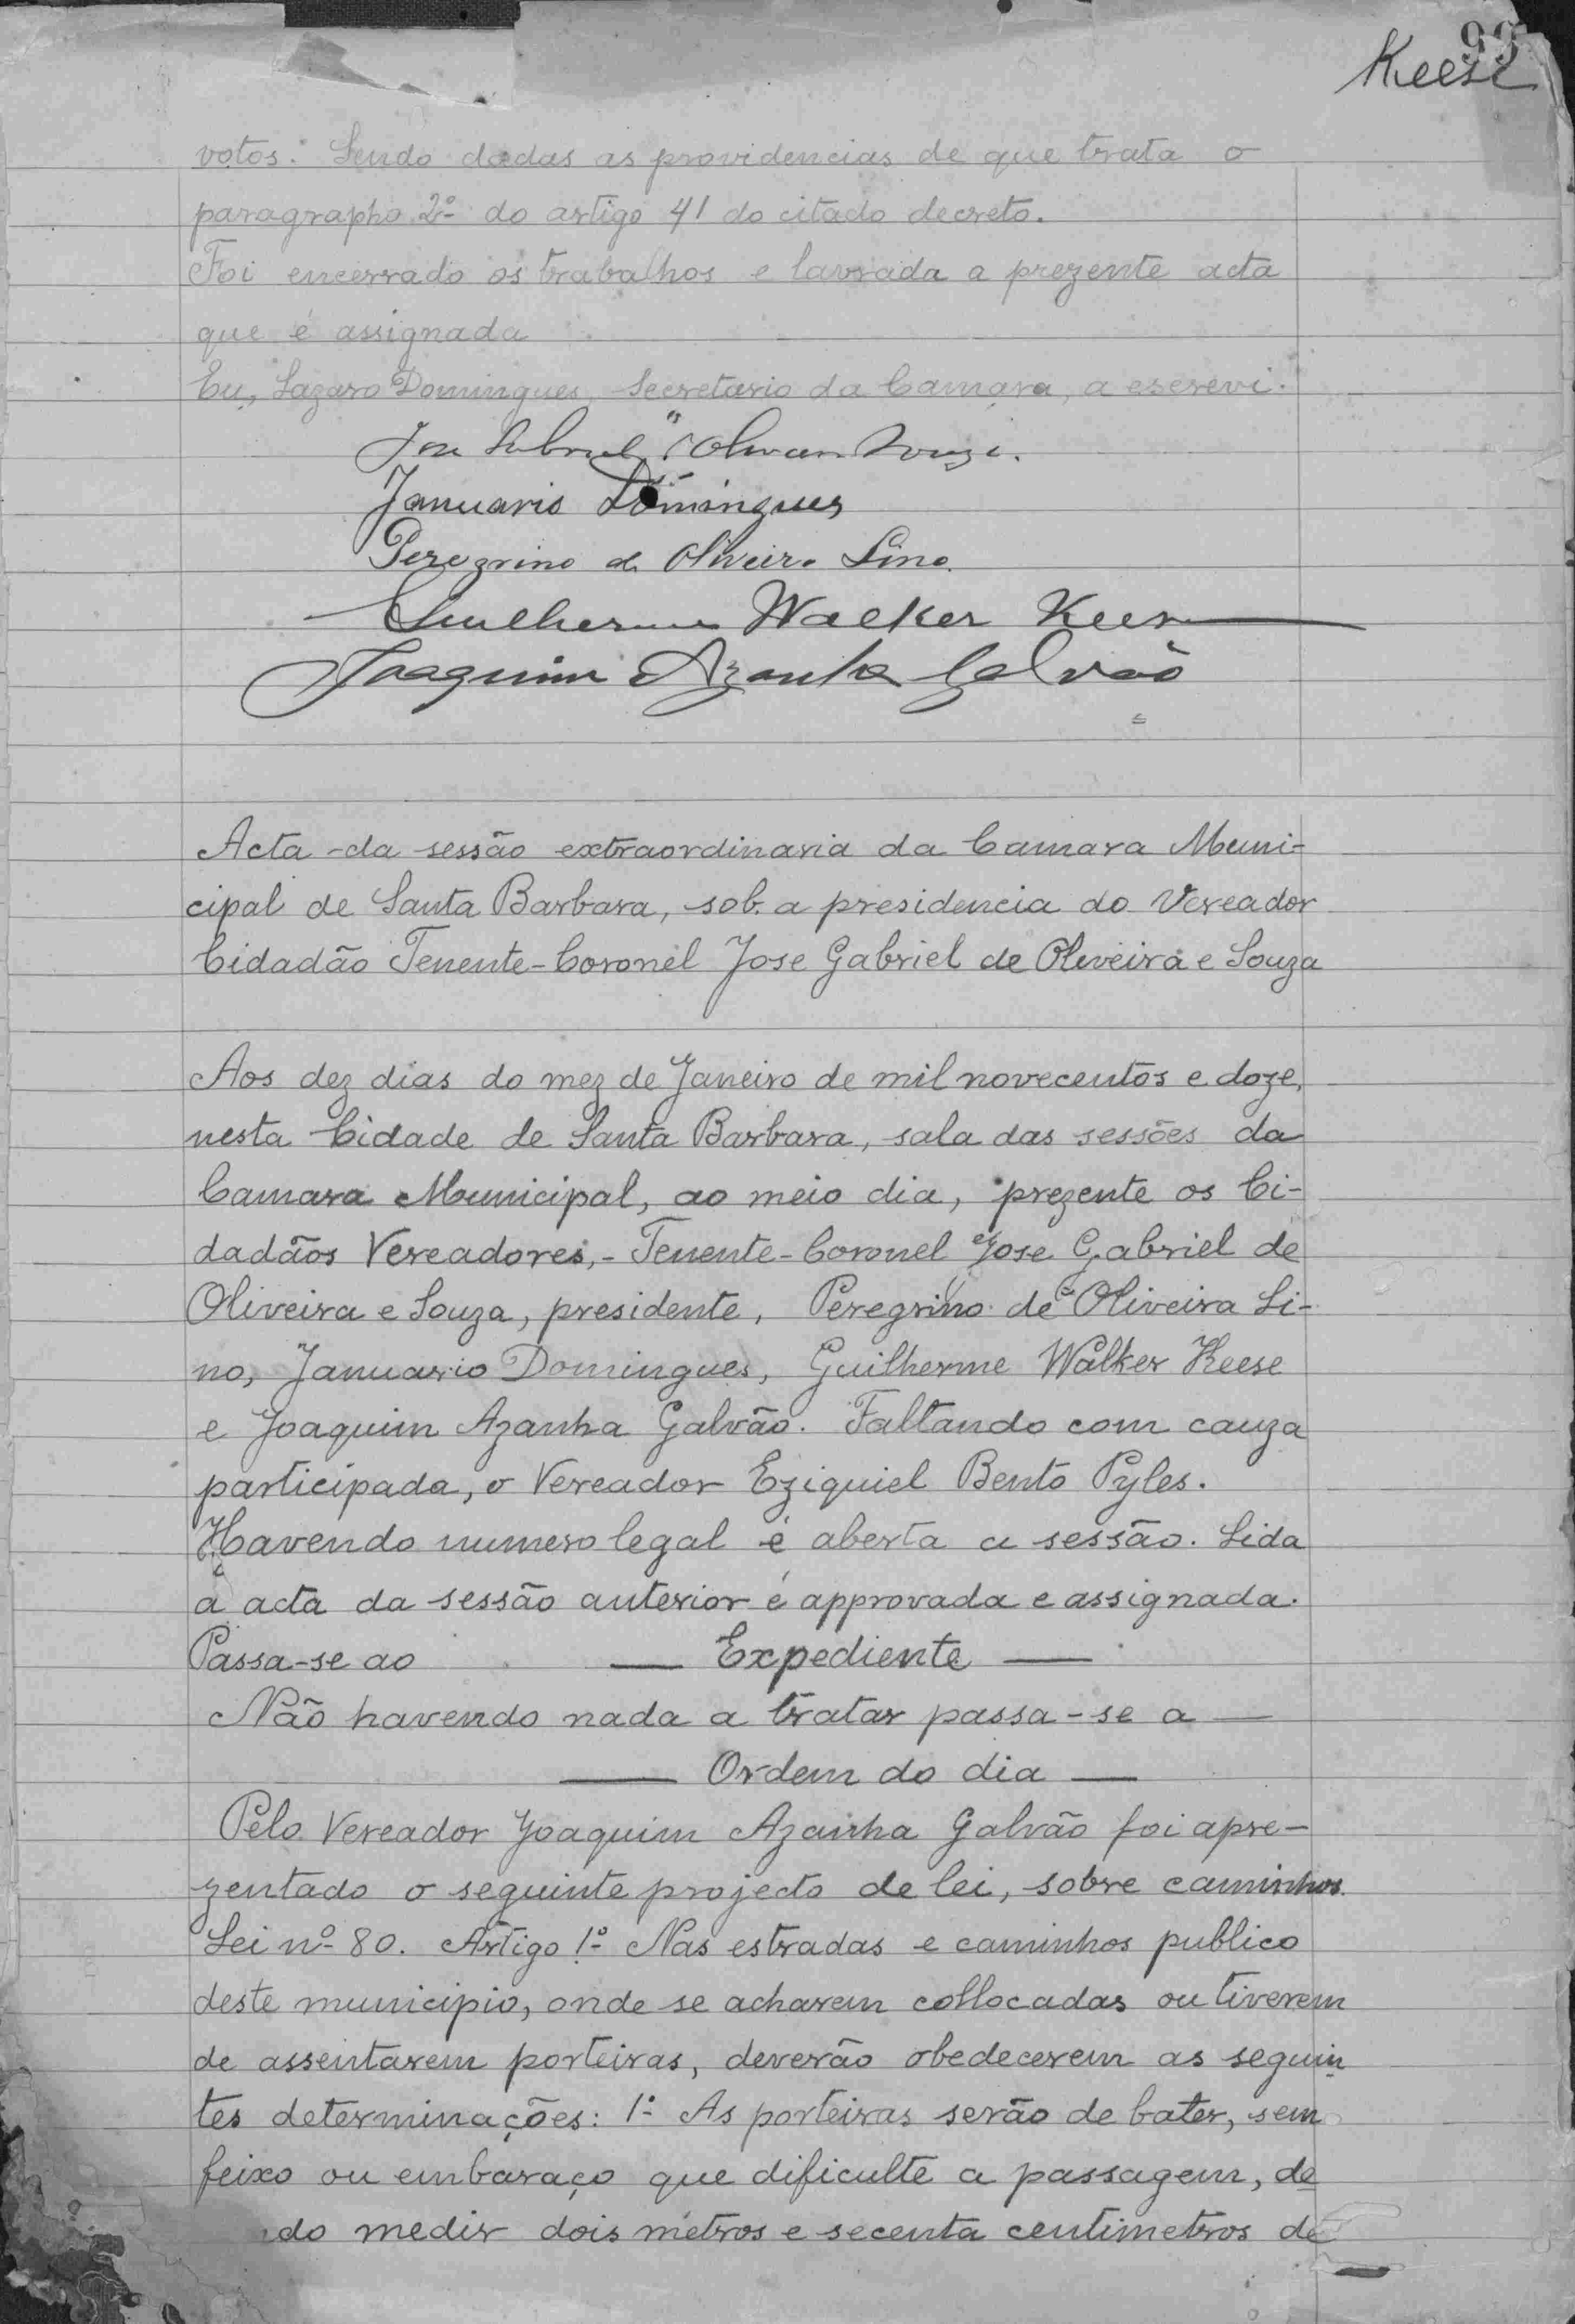 99
Keese
votos. Sendo dadas as providencias de que trata o
paragrapho 2º do artigo 41 do citado decreto.
Foi encerrado os trabalhos e lavrada a prezente acta
que é assignada
Eu, Lazaro Domingues, Secretario da Camara, a escrevi.
Jose Gabriel Oliveira Souza.
Januario Domingues
Peregrino de Oliveira Lino.
Guilherme Walker Keese
Joaquim Azanha Galvão
Acta da sessão extraordinaria da Camara Muni-
cipal de Santa Barbara, sob. a presidencia do Vereador
Cidadão Tenente-Coronel Jose Gabriel de Oliveira e Souza
Aos dez dias do mez de Janeiro de mil novecentos e doze,
nesta Cidade de Santa Barbara, sala das sessões da
Camara Municipal, ao meio dia, prezente os Ci-
dadãos Vereadores,- Tenente-Coronel Jose Gabriel de
Oliveira e Souza, presidente, Peregrino de Oliveira Li-
no, Januario Domingues, Guilherme Walker Keese
e Joaquim Azanha Galvão. Faltando com cauza
participada, o Vereador Eziquiel Bento Pyles.
Havendo numero legal é aberta a sessão. Lida
a acta da sessão anterior é approvada e assignada.
Passa-se ao — Expediente —
Não havendo nada a tratar passa-se a —
— Ordem do dia —
Pelo Vereador Joaquim Azanha Galvão foi apre-
zentado o seguinte projecto de lei, sobre caminhos.
Lei nº 80. Artigo 1º Nas estradas e caminhos publico
deste municipio, onde se acharem collocadas ou tiverem
de assentarem porteiras, deverão obedecerem as seguin
tes determinações: 1ª As porteiras serão de bater, sem
feixo ou embaraço que dificulte a passagem, de
do medir dois metros e secenta centimetros de